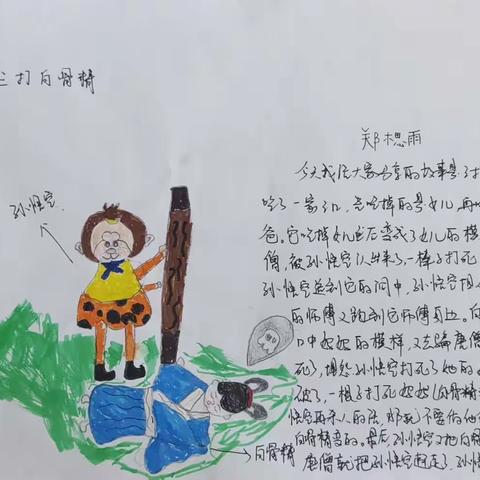 三打白骨精
郑楒雨
孙悟空
今天我给大家分享的故事是三打
吃了一家三口,先吃掉的是女儿,再
爸。它吃掉女儿之后变成了女儿的模
僧,被孙悟空认出来了,一棒子打死
孙悟空追到它的洞中,孙悟空担
的师傅又跑到它师傅身边。白
口中妈妈的模样,又去骗唐僧
死了,虽然孙悟空打死了她的
了,一棍子打死妈妈(白骨精
悟空再杀人的话,那就不要做他
白骨精变的。最后,孙悟空又把白骨精
唐僧就把孙悟空赶走了,孙悟
白骨精